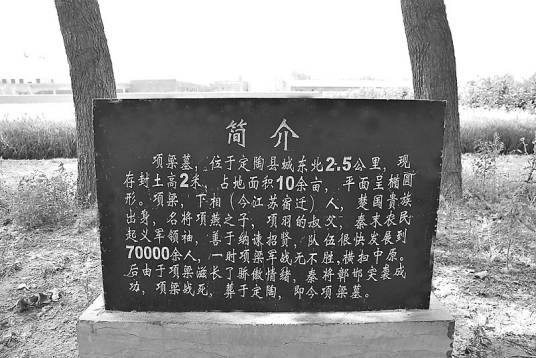 简介
项梁墓，位于定陶县城东北2.5公里，现
存封土高2米，占地面积10余亩，平面呈椭圆
形。项梁，下相（今江苏宿迁）人，楚国贵族
出身，名将项燕之子，项羽的叔父，秦末农民
起义军领袖，善于纳谏招贤，队伍很快发展到
70000余人，一时项梁军战无不胜，横扫中原。
后由于项梁滋长了骄傲情绪，秦将章邯突袭成
功，项梁战死，葬于定陶，即今项梁墓。